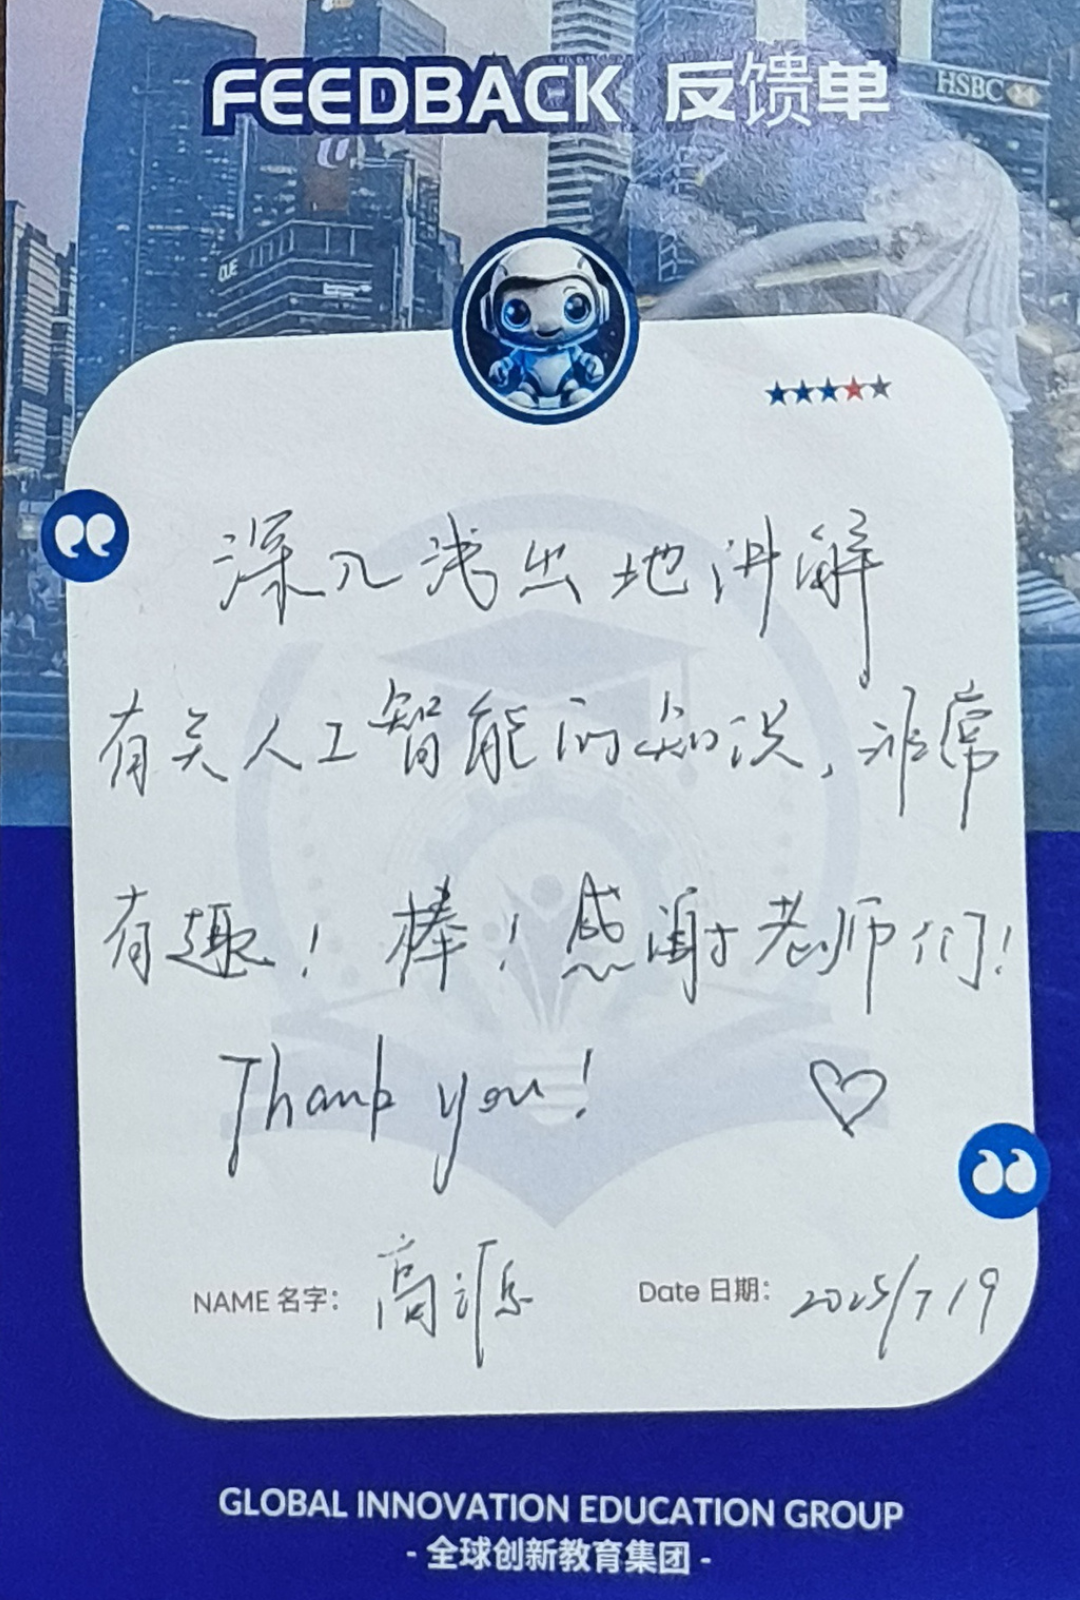 FEEDBACK 反馈单
HSBC
深入浅出地讲解
有关人工智能的知识,非常
有趣!棒!感谢老师们!
Thank you! ♡
NAME 名字: 高源
Date 日期: 2025/7/19
GLOBAL INNOVATION EDUCATION GROUP
- 全球创新教育集团 -